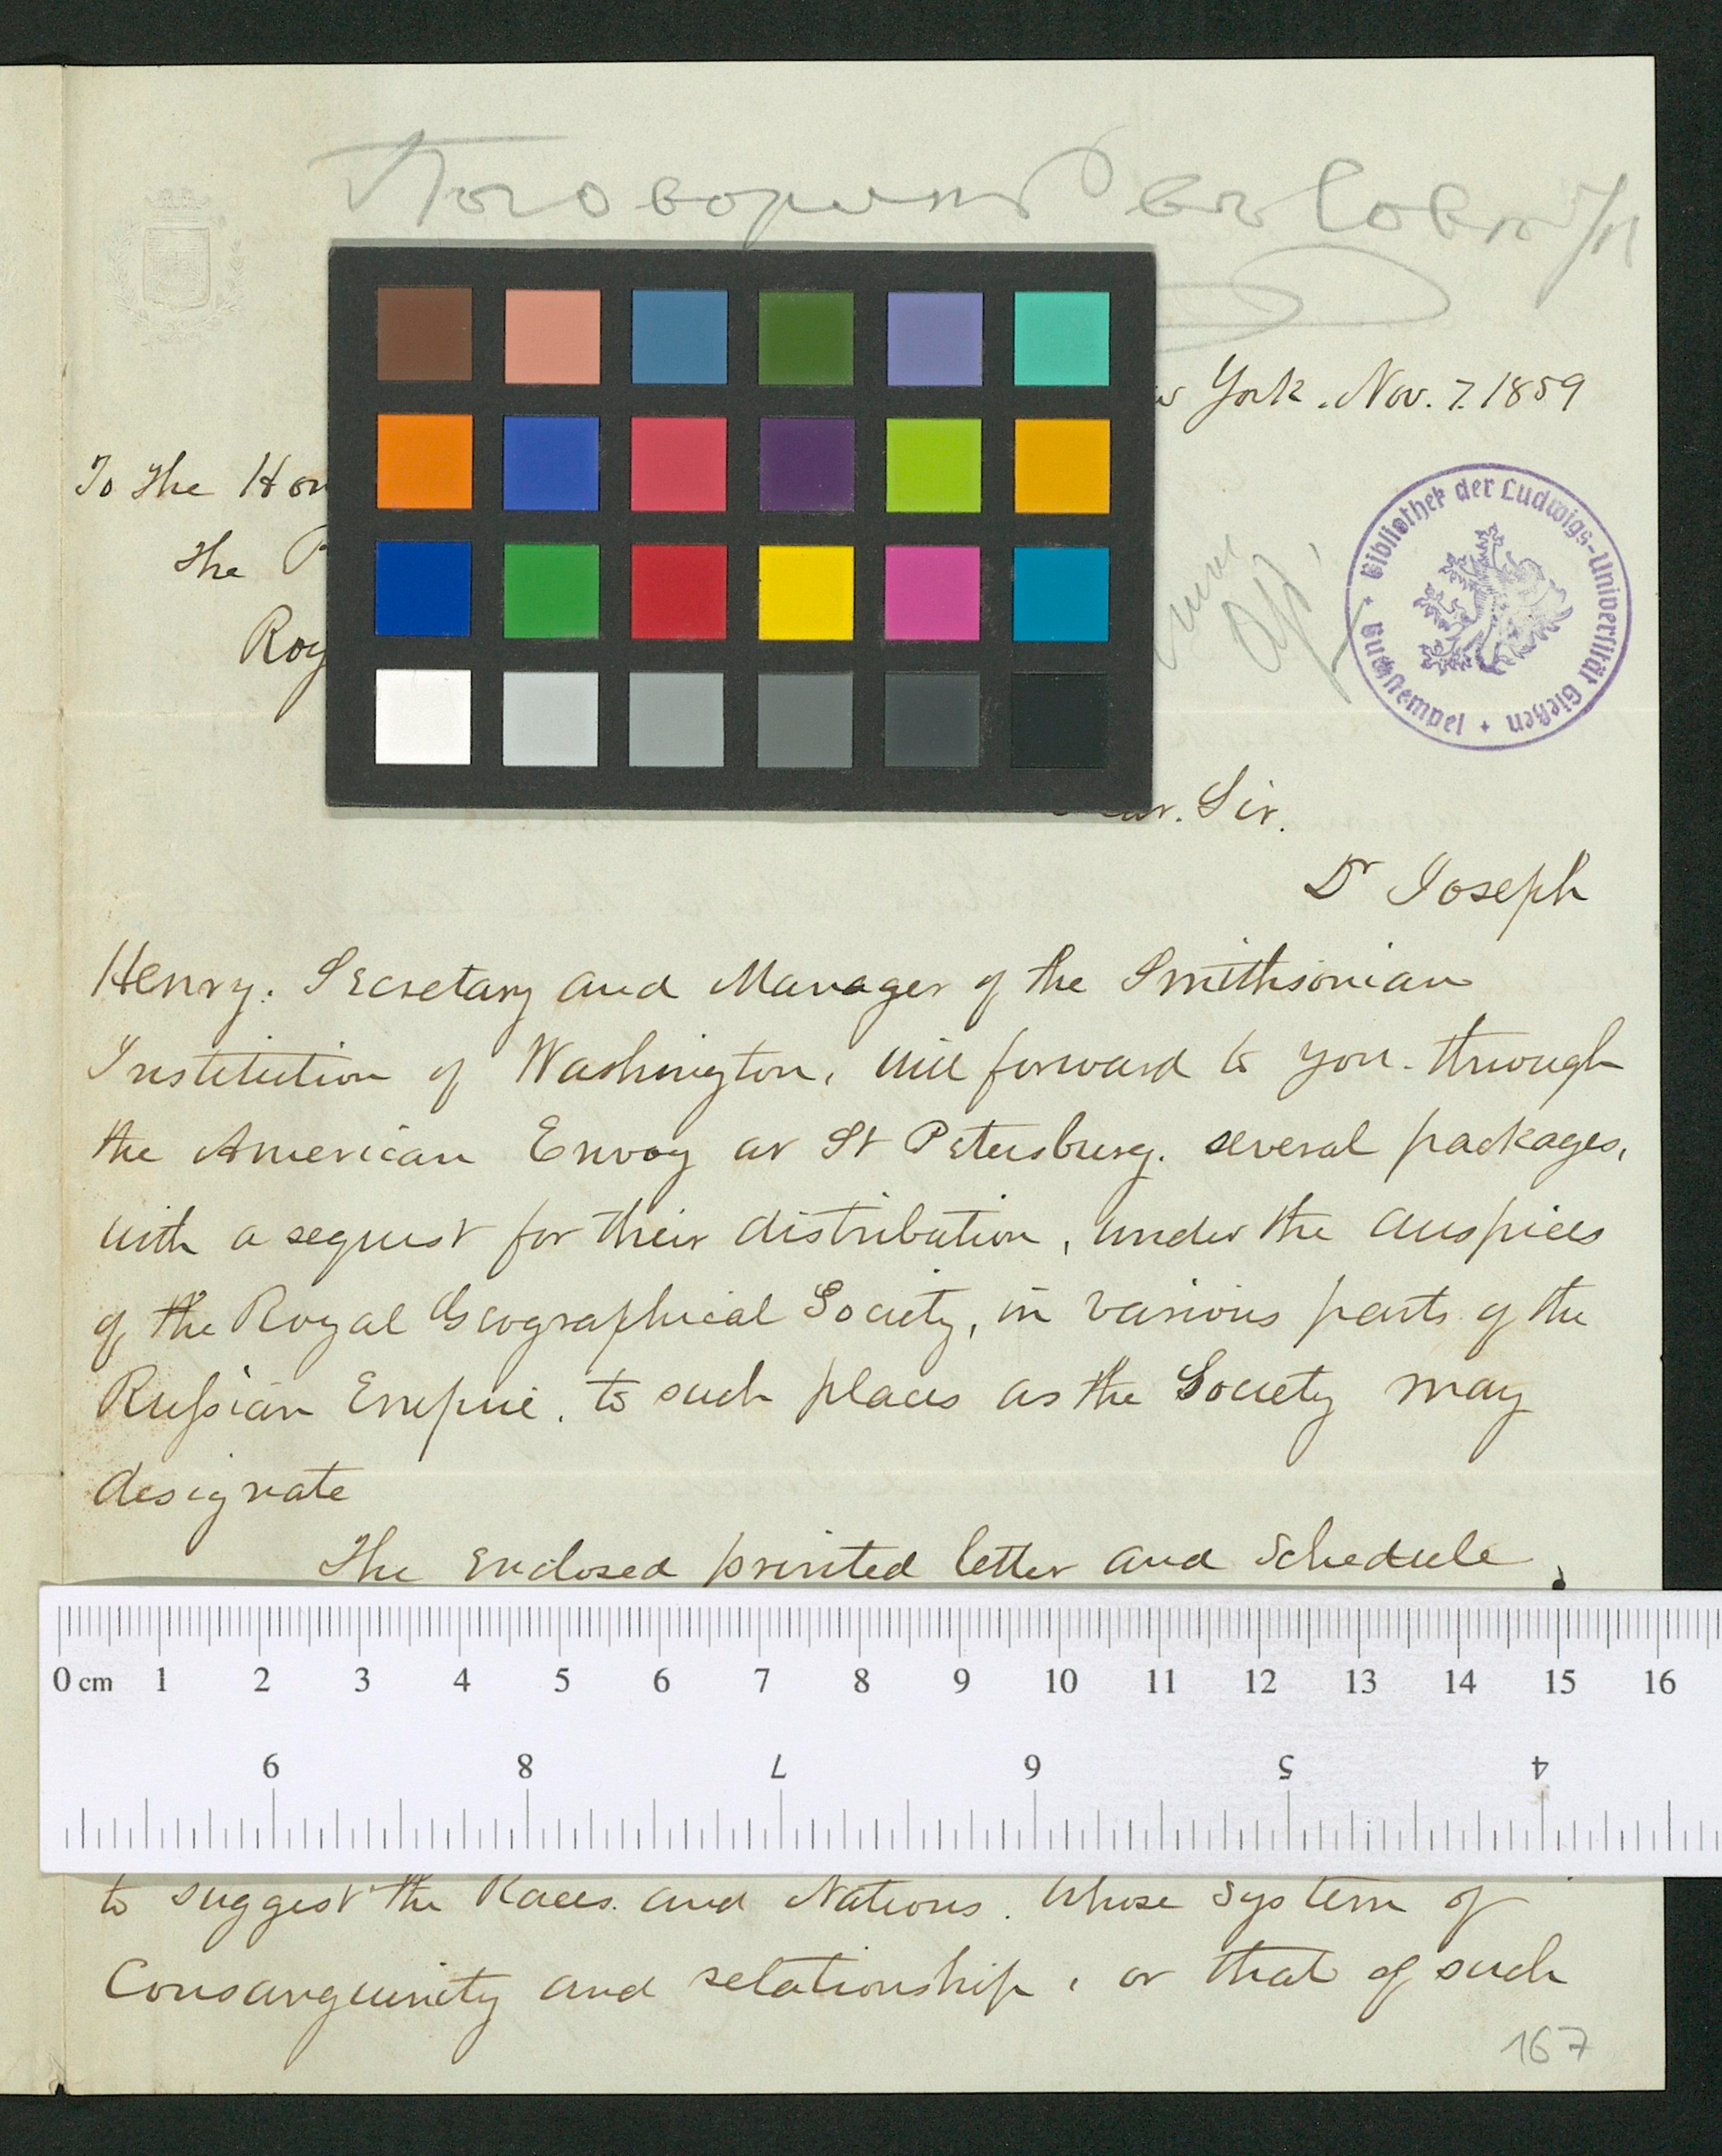 York. Nov. 7. 1859
To the Hon
the
Roy
Bibliothek der Ludwigs-Universität Gießen
Buchstempel
Sir.
Dr Joseph
Henry. Secretary and Manager of the Smithsonian
Institution of Washington, will forward to you through
the American Envoy at St Petersburg. several packages,
with a request for their distribution, under the auspices
of the Royal Geographical Society, in various parts of the
Russian Empire. to such places as the Society may
designate
The enclosed printed letter and Schedule
0 cm 1 2 3 4 5 6 7 8 9 10 11 12 13 14 15 16
9 8 7 6 5 4
to suggest the Races. and Nations. whose system of
Consanguinity and relationship, or that of such
167